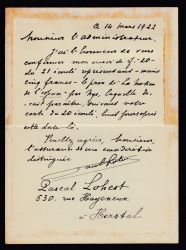 le 14 mars 1922
Monsieur l'administrateur
J'ai l'honneur de vous
confirmer mon envoi de f. 20-
du 21 août représentant - moins
cinq francs - le prix de la
par laquelle
paraître, suivant votre
carte du 20 août,
cette date-là.
Veuillez agréer, Monsieur,
l'assurance de ma considération
distinguée.
Pascal Lohest
530. rue Hayeneux
à Herstal